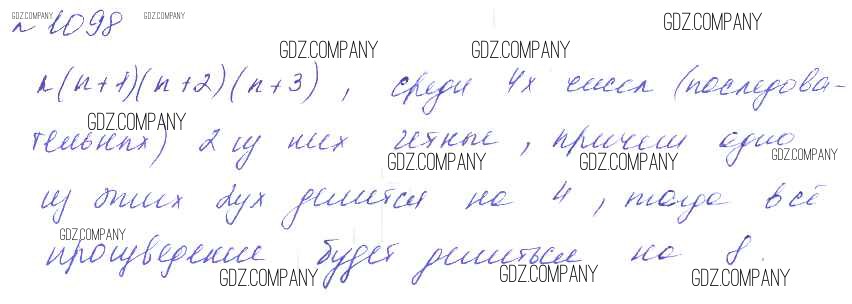 GDZ.COMPANY GDZ.COMPANY
№ 1098
GDZ.COMPANY
GDZ.COMPANY GDZ.COMPANY
n(n+1)(n+2)(n+3), среди 4х чисел (последова-
GDZ.COMPANY
тельных) 2 из них четные, причем одно
GDZ.COMPANY GDZ.COMPANY GDZ.COMPANY
из этих 2ух делится на 4, тогда всё
GDZ.COMPANY
произведение будет делиться на 8.
GDZ.COMPANY GDZ.COMPANY GDZ.COMPANY